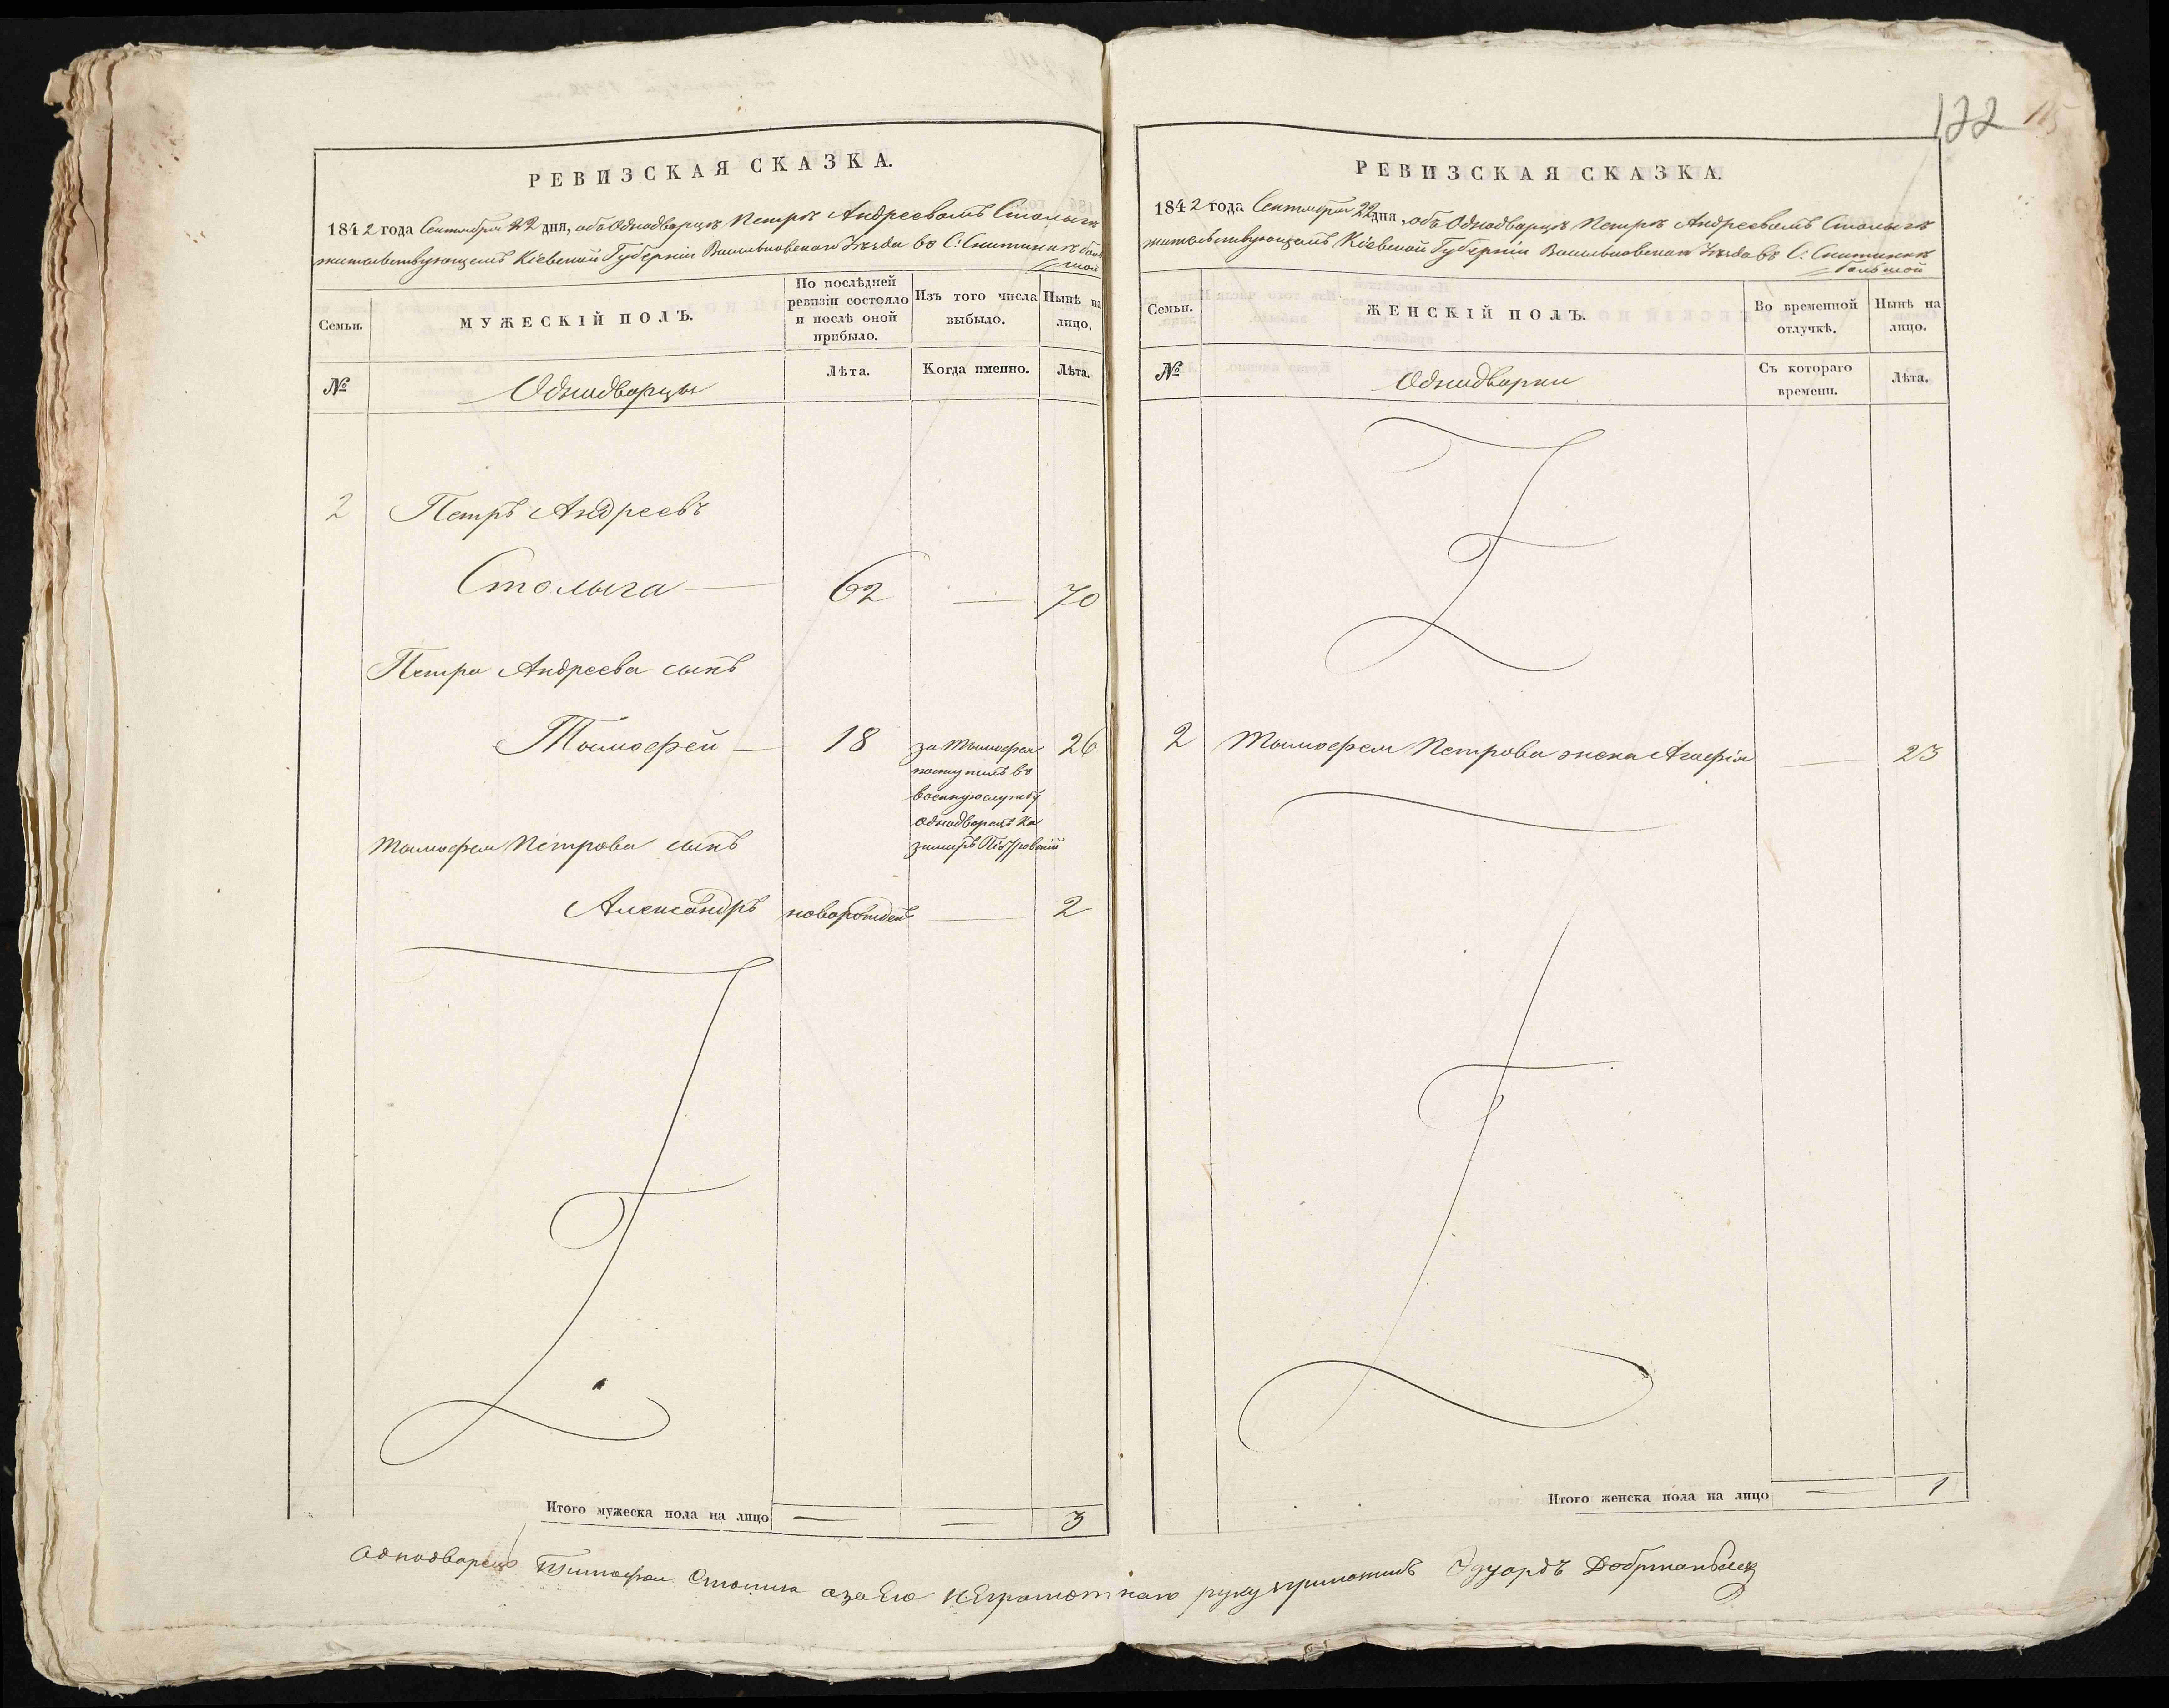 РЕВИЗСКАЯ СКАЗКА.
1842 года Сентября 22 дня, объ Однодворцѣ Петрѣ Андреевомъ Столыгѣ
жительствующемъ Кіевской Губерніи Васильковскаго Уѣзда во С: Снитинкѣ боль
шой
Семьи.
МУЖЕСКІЙ ПОЛЪ.
По послѣдней ревизіи состояло и послѣ оной прибыло.
Изъ того числа выбыло.
Нынѣ на лицо.
№
Однодворцы
Лѣта.
Когда именно.
Лѣта.
2 Петръ Андреевъ
Столыга — 62 — 70
Петра Андреева сынъ
Тимофей — 18 за Тимофея 26
поступилъ во
военную службу
Однодворецъ Ка
зимиръ
Тимофея Петрова сынъ
Александръ новорожден — 2
Итого мужеска пола на лицо — — 3
122 115
РЕВИЗСКАЯ СКАЗКА.
1842 года Сентября 22 дня, объ Однодворцѣ Петрѣ Андреевомъ Столыгѣ
жительствующемъ Кіевской Губерніи Васильковскаго Уѣзда во С: Снитинкѣ
большой
Семьи.
ЖЕНСКІЙ ПОЛЪ.
Во временной отлучкѣ.
Нынѣ на лицо.
№
Однодворки
Съ котораго времени.
Лѣта.
2 Тимофея Петрова жена Агафія — 23
Итого женска пола на лицо — 1
Однодворецъ Тимофей Столыга а за Его НЕграмотнаго руку приложилъ Эдуардъ